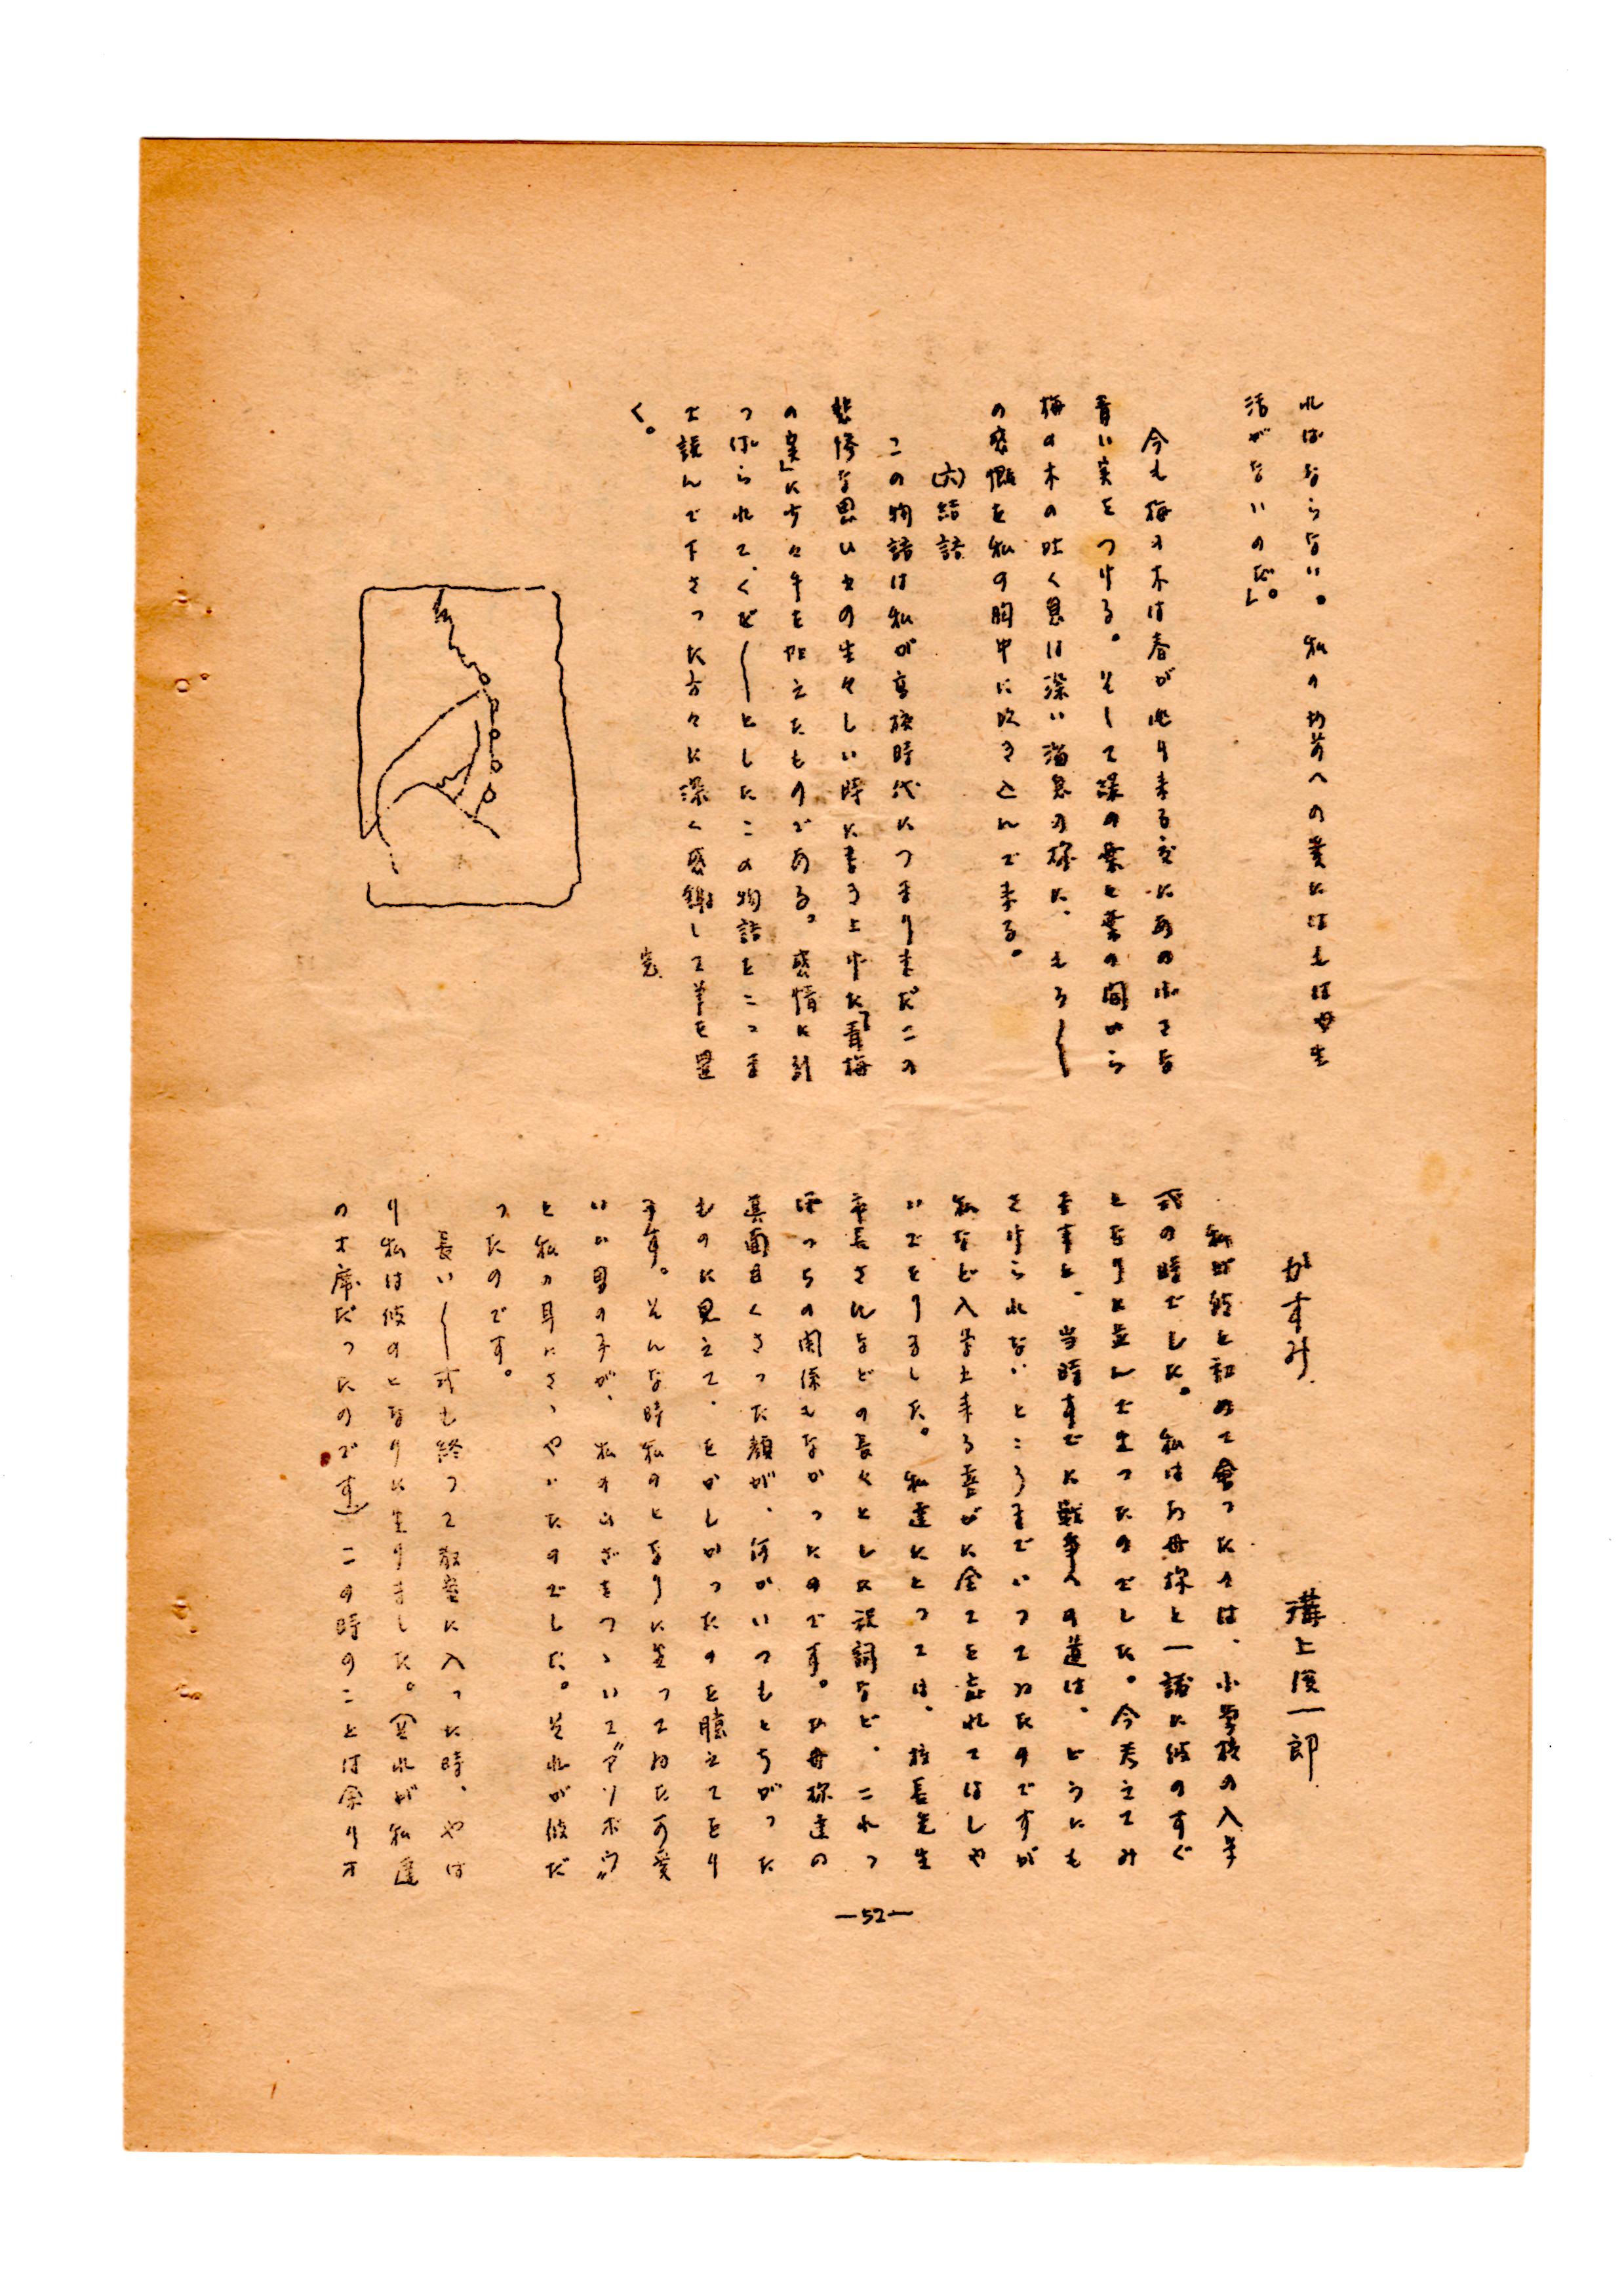 ればならない。私のお前への愛にはもはや生
活がないのだ。」
今も梅の木は春が巡り来る度にあの小さな
青い実をつける。そして緑の葉と葉の間から
梅の木の吐く息は深い溜息の様に、もろ〱
の感慨を私の胸中に吹き込んで来る。
(六)結語
この物語は私が高校時代につまりまだこの
悲惨な思い出の生々しい時に書き上げた「青梅
の実」に少々手を加えたものである。感情に引
っぱられて、くど〱としたこの物語をここま
で読んで下さった方々に深く感謝して筆を置
く。
完
かすみ
溝上 一郎
私が彼と初めて会ったのは、小学校の入学
式の時でした。私はお母様と一諸に彼のすぐ
となりに並んで立ったのでした。今考えてみ
ますと、当時すでに戦争への道は、どうにも
さけられないところまでいってゐたのですが
私など入学出来る喜びに全てを忘れてはしや
いでをりました。私達にとっては、校長先生
市長さんなどの長々とした祝詞など、これっ
ぽっちの関係もなかったのです。お母様達の
真面目くさった顔が、何かいつもとちがった
ものに見えて、をかしかったのを憶えてをり
ます。そんな時私のとなりに立ってゐた可愛
いい男の子が、私のひざをつゝいて〝アソボウ〟
と私の耳にさゝやいたのでした。それが彼だ
ったのです。
長い〱式も終って教室に入った時、やは
り私は彼のとなりに坐りました。(これが私達
の才席だったのです)この時のことは余りオ
—52—